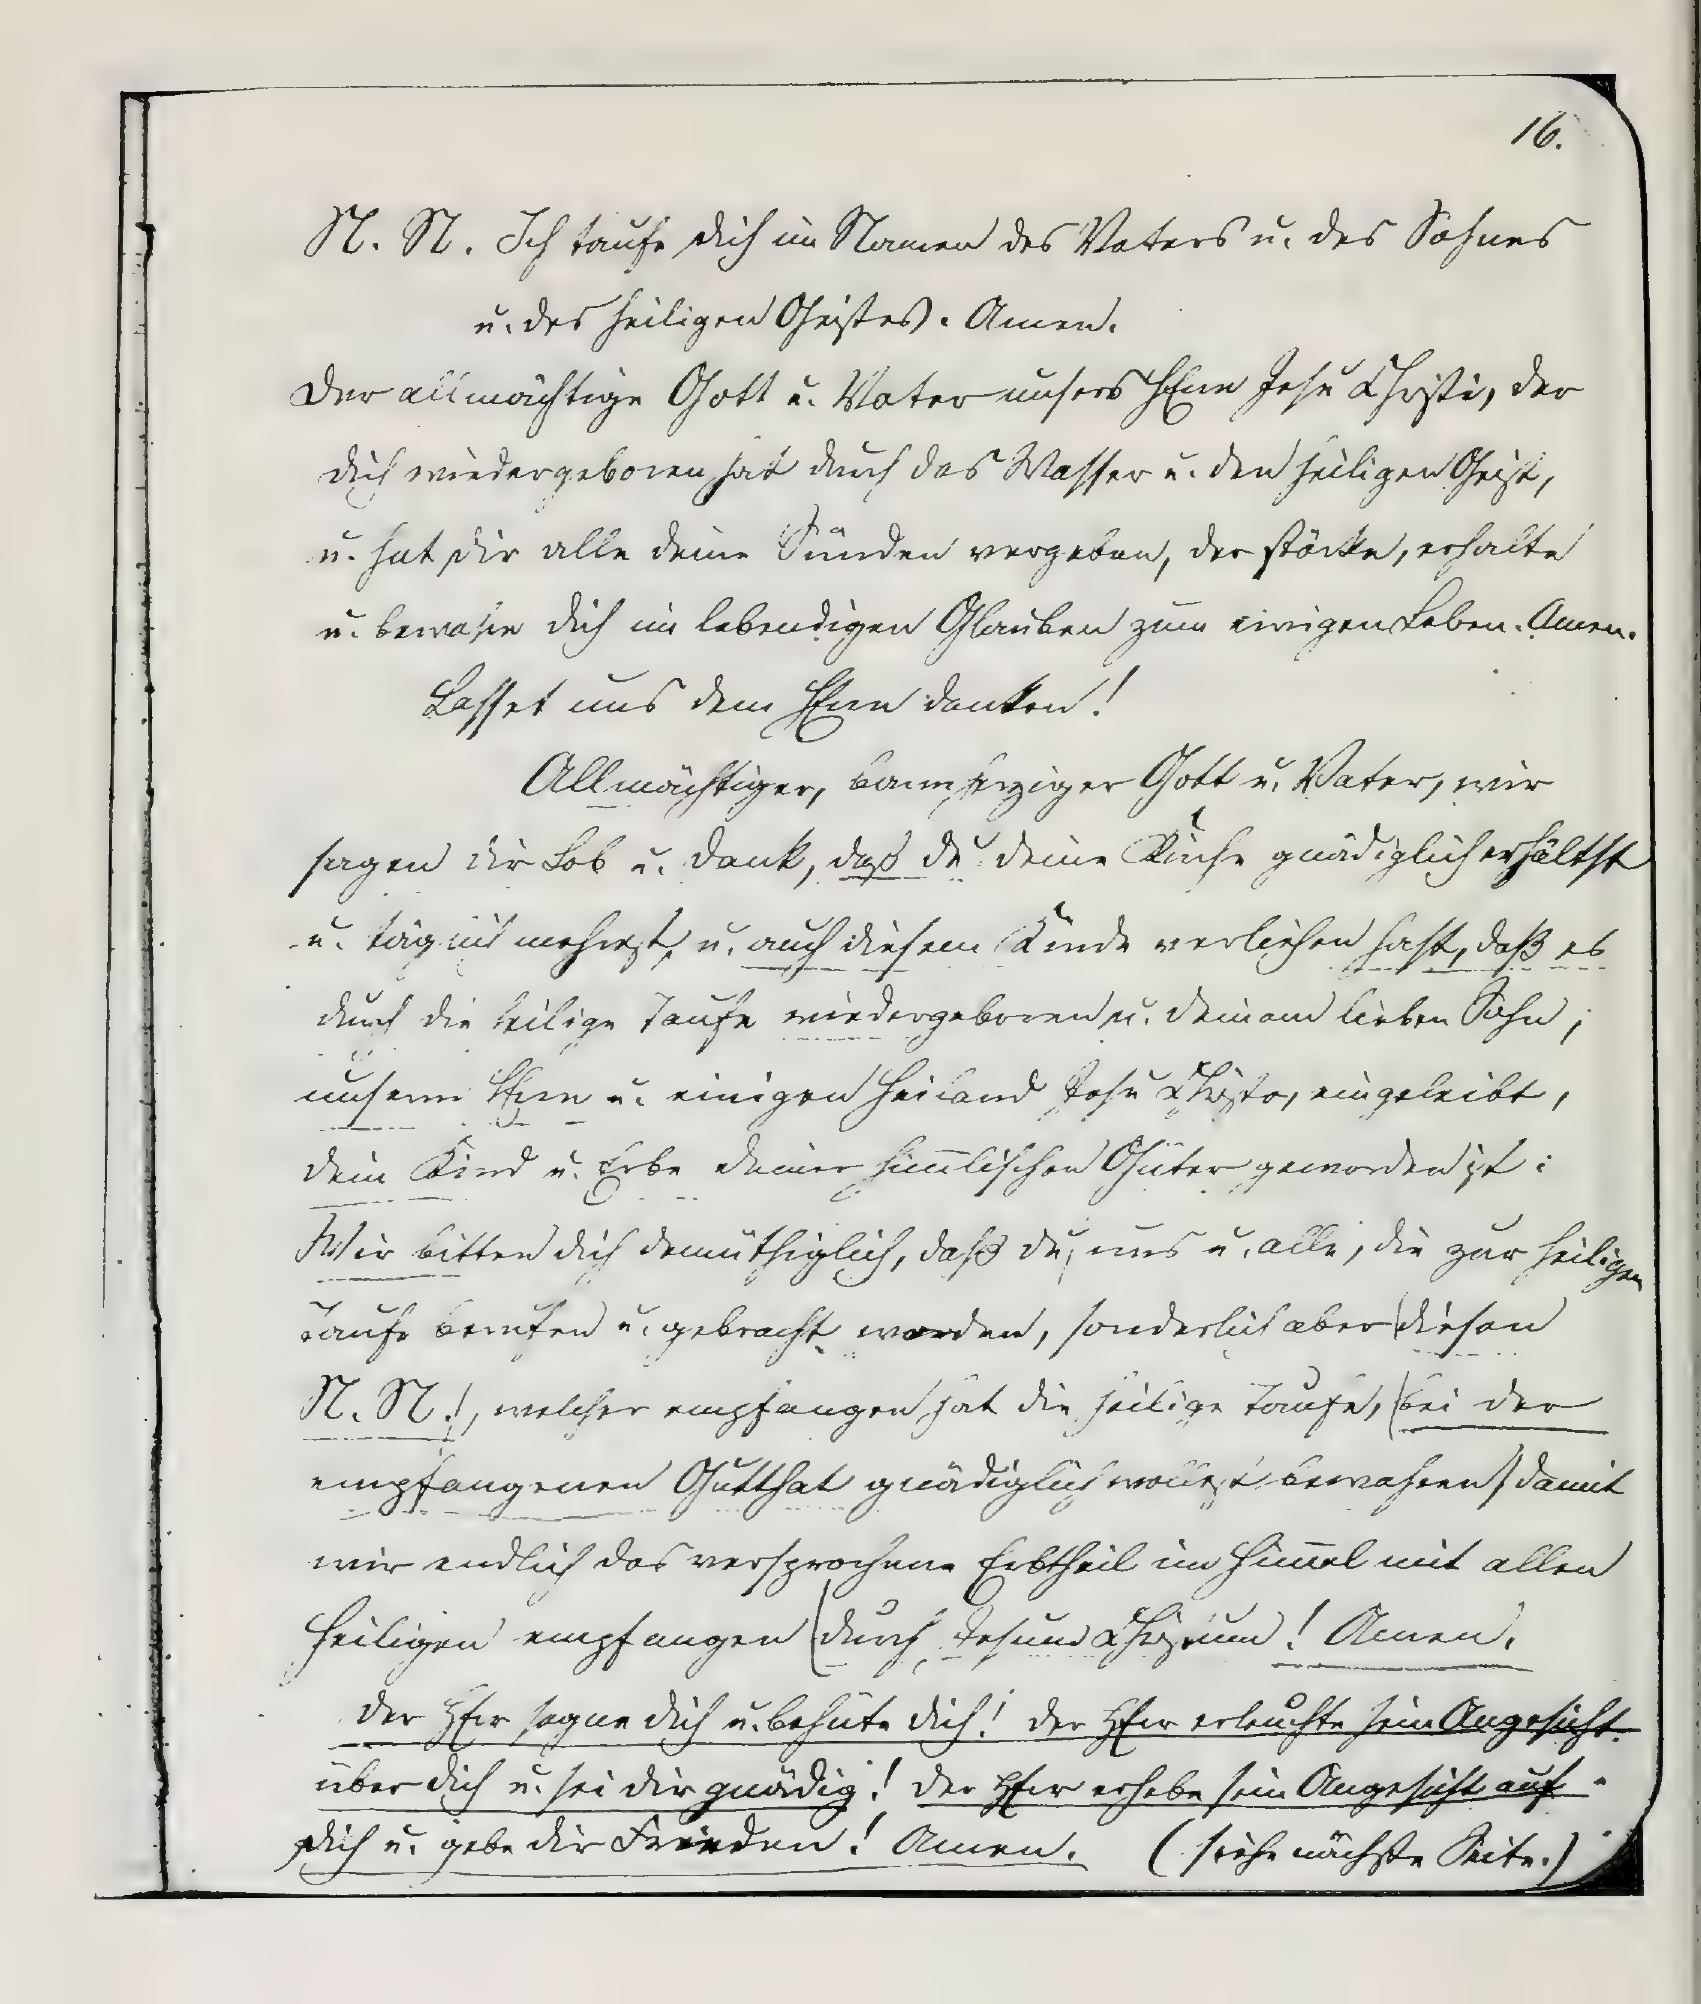 16.
N. N. Ich taufe dich im Namen des Vaters u. des Sohnes
u. des heiligen Geistes. Amen.
Der allmächtige Gott u. Vater unsers HErrn Jesu Christi, der
dich wiedergeboren hat durch das Wasser u. den heiligen Geist,
u. hat dir alle deine Sünden vergeben, der stärke, erhalte
u. bewahre dich im lebendigen Glauben zum ewigen Leben. Amen.
Lasset uns dem HErrn danken!
Allmächtiger, barmherziger Gott u. Vater, wir
sagen dir Lob u. Dank, daß du deine Kirche gnädiglich erhältst
u. täglich mehrest, u. auch diesem Kinde verliehen hast, daß es
durch die heilige Taufe wiedergeboren u. deinem lieben Sohn,
unserm HErrn u. einigen Heiland Jesu Christo, eingeleibt,
dein Kind u. Erbe deiner him̅lischen Güter geworden ist:
Wir bitten dich demüthiglich, daß du, uns u. alle, die zur heiligen
Taufe berufen u. gebracht worden, sonderlich aber (diesen
N. N.), welcher empfangen hat die heilige Taufe, (bei der
empfangenen Gutthat gnädiglich wollest bewahren) damit
wir endlich das versprochene Erbtheil im Him̅el mit allen
Heiligen empfangen (durch Jesum Christum! Amen.
Der HErr segne dich u. behüte dich! Der HErr erleuchte sein Angesicht
über dich u. sei dir gnädig! Der HErr erhebe sein Angesicht auf
dich u. gebe dir Frieden! Amen. (siehe nächste Seite.)